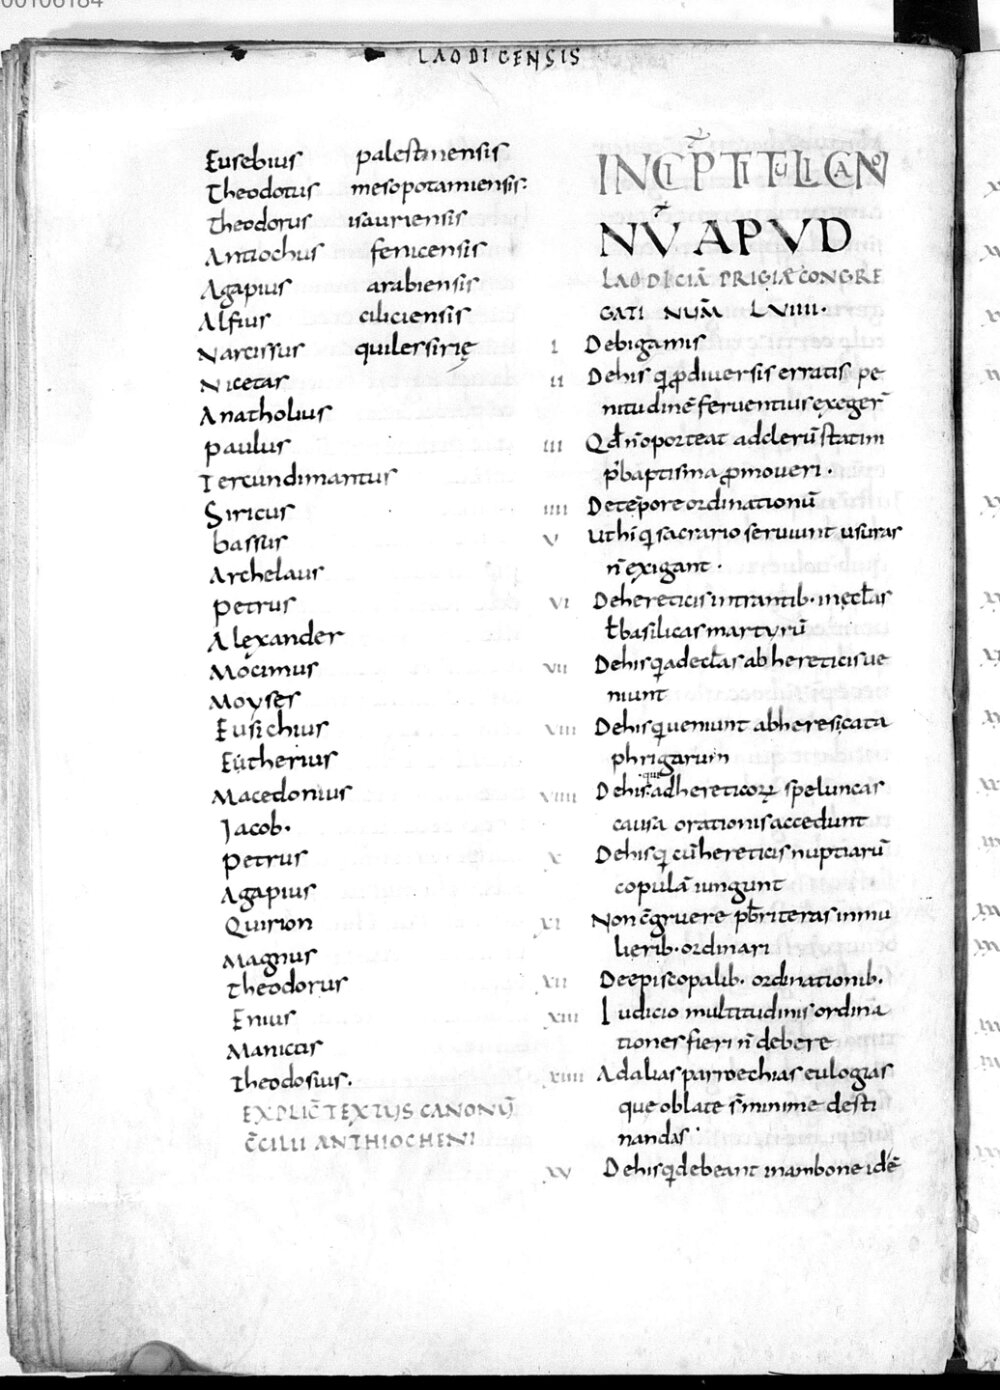 00106184
LAODICENSIS
Eusebius palestinensis
Theodotus mesopotamiensis:
Theodorus isauriensis
Antiochus fenicensis
Agapius arabiensis
Alfius ciliciensis
Narcissus qui le ssirię
Nicetas
Anatholius
paulus
Tercundimantus
Siricus
bassus
Archelaus
petrus
Alexander
Mocimus
Moyses
Eusichius
Eutherius
Macedonius
Jacob.
petrus
Agapius
Quirion
Magnus
Theodorus
Enius
Manicius
Theodosius.
EXPLIC̄ TEXTUS CANONŪ
C̄CILII ANTHIOCHENI
INCIP̄T TITULI CANO
NŪ APVD
LAODICIĀ FRIGIÆ CONGRE
GATI NUM̄ LVIIII.
I De bigamis
II De his q̄ ꝓ diversis erratis pe
nitudinē ferventius exeger̄
III Qd̄ n̄ oporteat ad clerū statim
p̄ baptisma ꝓmoveri.
IIII De tēpore ordinationū
V Ut hi q̄ sacrario serviunt usuras
n̄ exigant.
VI De hereticis intrantib. in ęcl̄as
ł basilicas martyrū
VII De his q̄ ad ecl̄as ab hereticis ve
niunt
VIII De his q̄ veniunt ab heresi cata
phrigarum
VIIII De his qui ad hereticoꝝ speluncas
causa orationis accedunt
X De his q̄ cū hereticis nuptiarū
copulā iungunt
XI Non c̄gruere pb̄riteras in mu
lierib. ordinari
XII De episcopalib. ordinationib.
XIII Iudicio multitudinis ordina
tiones fieri n̄ debere
XIIII Ad alias parroechias eulogias
que oblate s̄ minime desti
nandas.
XV De his q̄ debeant in ambone idē